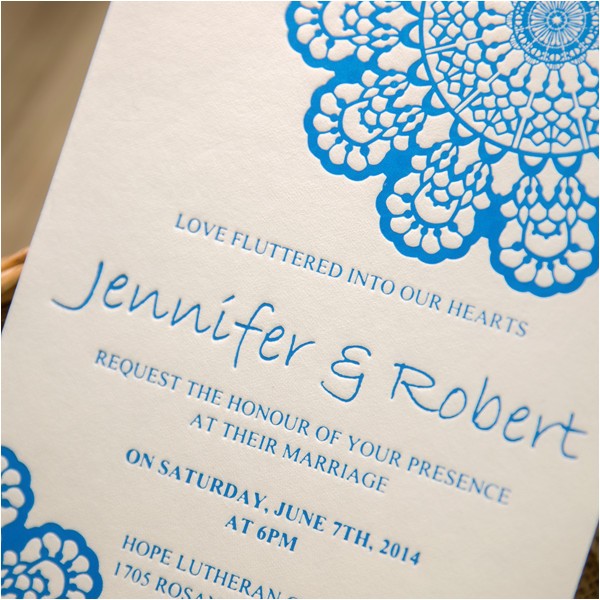 LOVE FLUTTERED INTO OUR HEARTS
Jennifer & Robert
REQUEST THE HONOUR OF YOUR PRESENCE
AT THEIR MARRIAGE
ON SATURDAY, JUNE 7TH, 2014
AT 6PM
HOPE LUTHERAN
1705